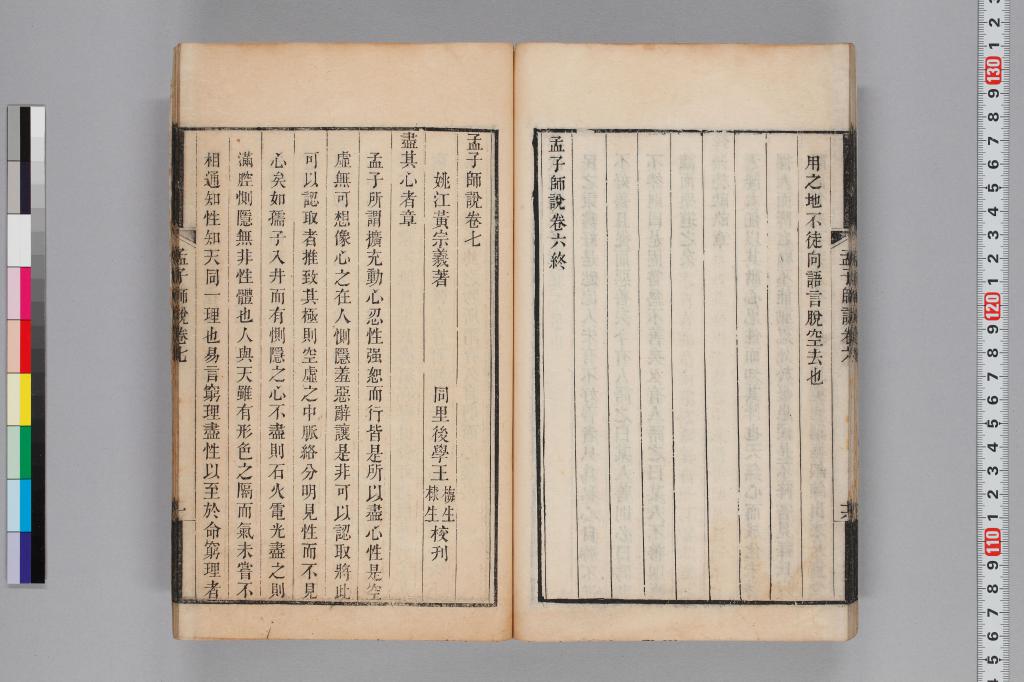 用之地不徒向語言脫空去也
孟子師說卷六終
孟子師說卷六
孟子師說卷七
姚江黃宗羲著 同里後學王梅生棣生校刊
盡其心者章
孟子所謂擴充動心忍性强恕而行皆是所以盡心性是空
虛無可想像心之在人惻隱羞惡辭讓是非可以認取將此
可以認取者推致其極則空虛之中脈絡分明見性而不見
心矣如孺子入井而有惻隱之心不盡則石火電光盡之則
滿腔惻隱無非性體也人與天雖有形色之隔而氣未嘗不
相通知性知天同一理也易言窮理盡性以至於命窮理者
孟子師說卷七
一
130
120
110